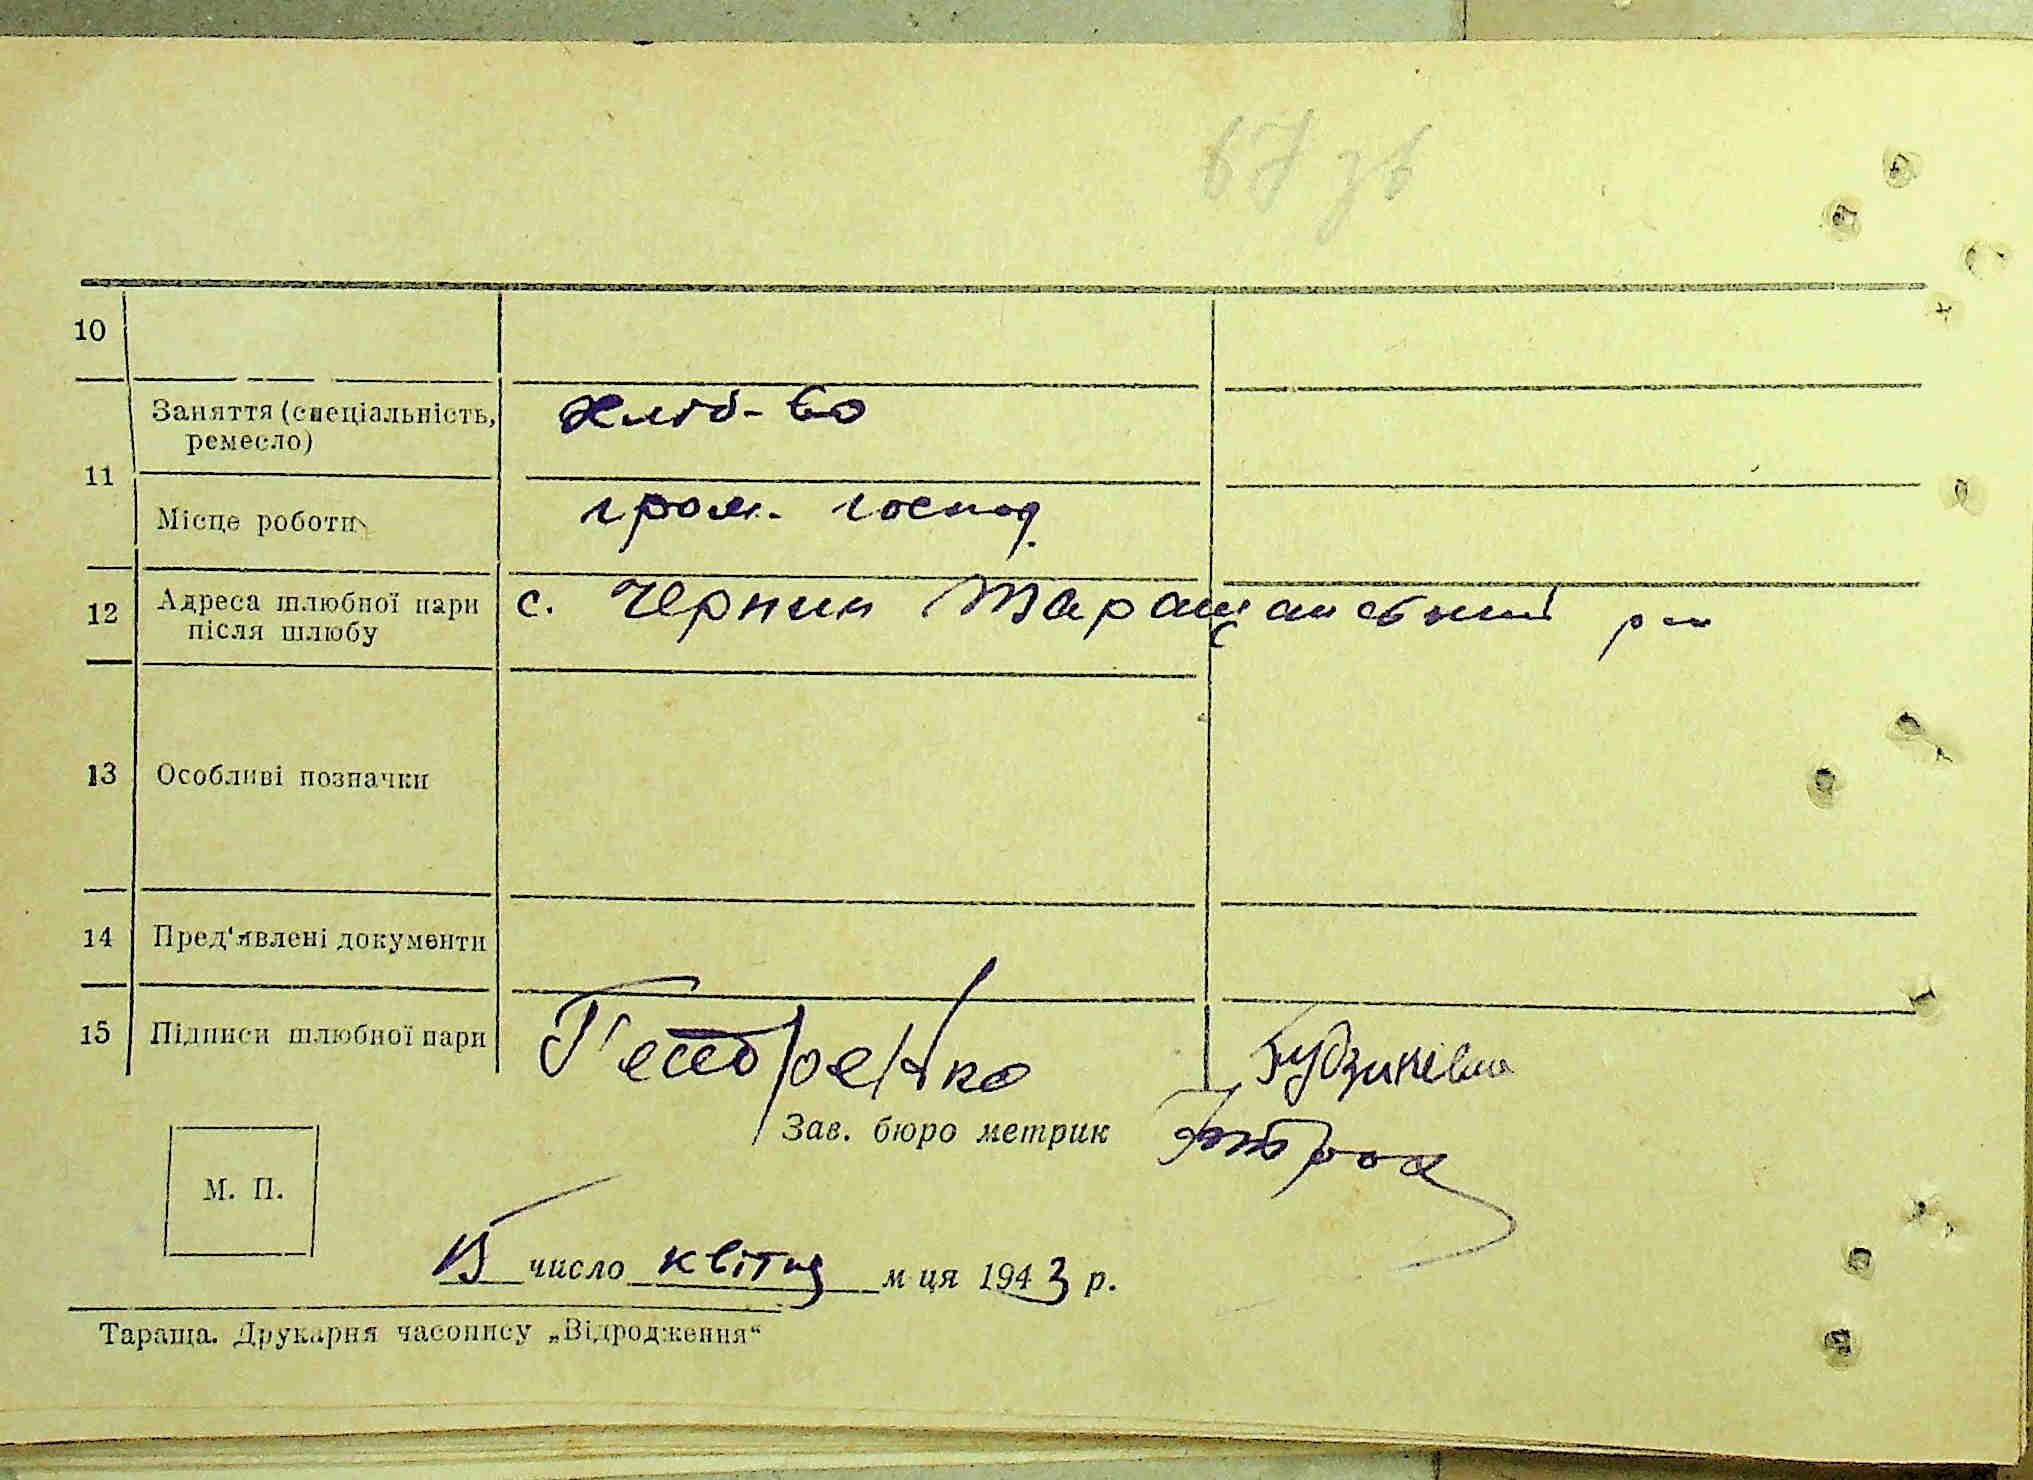 67 зв
10
Заняття (спеціальність, ремесло) хліб-во
11
Місце роботи гром. господ.
12 Адреса шлюбної пари після шлюбу с. Чернин Таращанський р-н
13 Особливі позначки
14 Пред'явлені документи
15 Підписи шлюбної пари
Зав. бюро метрик
М. П.
15 число квітня м-ця 1943 р.
Тараща. Друкарня часопису „Відродження“